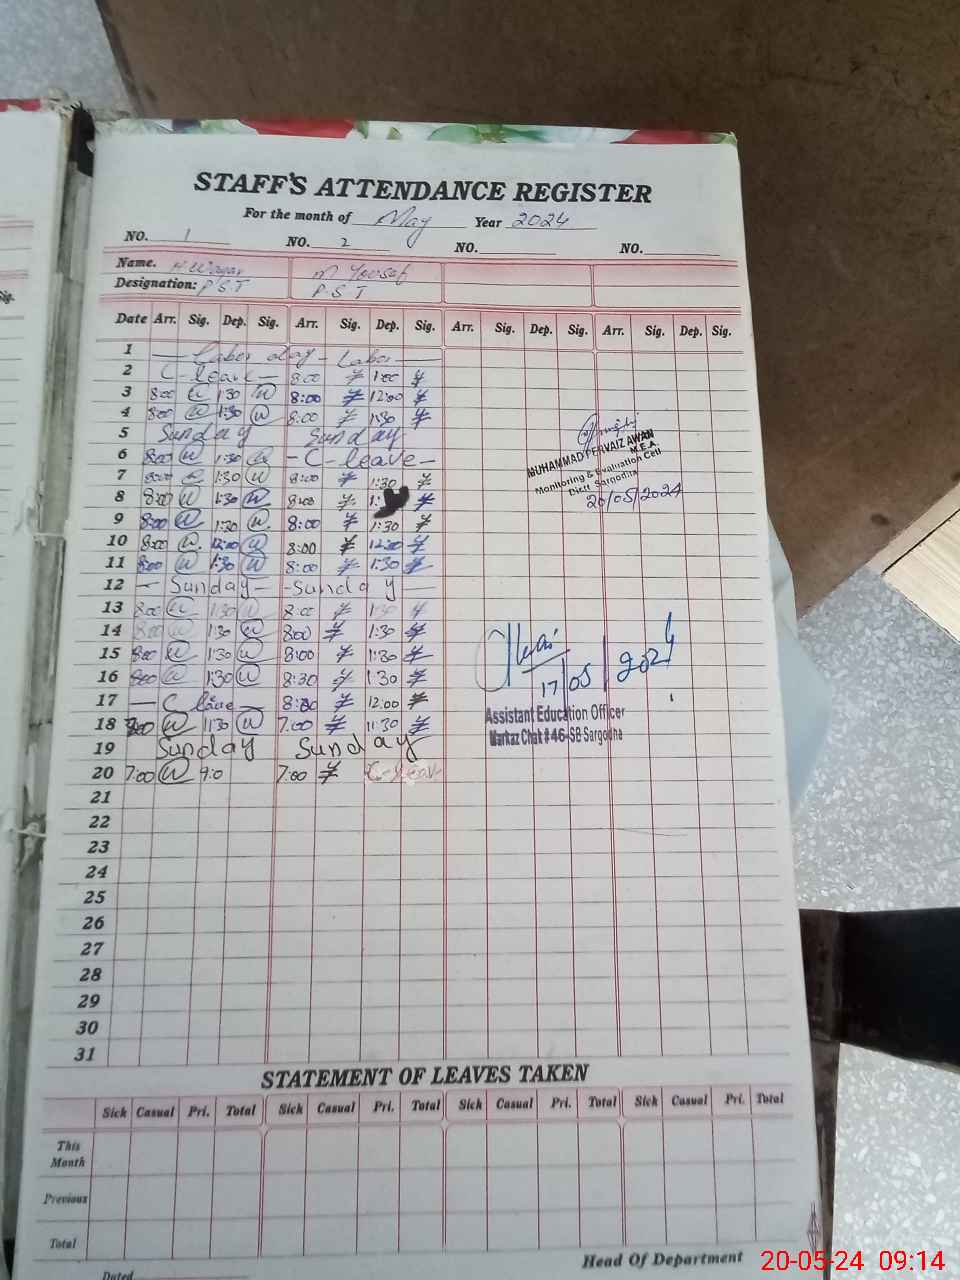 STAFF'S ATTENDANCE REGISTER
For the month of May Year 2024
NO. 1 NO. 2 NO. NO.
Name. H Waqar M Yousaf
Designation: P S T P S T
Date Arr. Sig. Dep. Sig. Arr. Sig. Dep. Sig. Arr. Sig. Dep. Sig. Arr. Sig. Dep. Sig.
1 — Labor day - Labor —
2 C- leave - 8:00 1:00
3 8:00 W 1:30 W 8:00 12:00
4 8:00 W 1:30 W 8:00 1:30
5 Sunday Sunday
6 8:00 W 1:30 W - C- leave -
7 8:00 1:30 W 8:00 1:30
8 8:00 W 1:30 W 8:00 1:
9 8:00 W 1:30 W 8:00 1:30
10 8:00 W 12:00 W 8:00 12:00
11 8:00 W 1:30 W 8:00 1:30
12 — Sunday - - Sunday —
13 8:00 W 1:30 W 8:00 1:30
14 8:00 W 1:30 W 8:00 1:30
15 8:00 W 1:30 W 8:00 1:30
16 8:00 W 1:30 W 8:30 1:30
17 — C leave — 8:00 12:00
18 W 11:30 W 7:00 11:30
19 Sunday Sunday
20 7:00 W 9:0 7:00 C-leave
21
22
23
24
25
26
27
28
29
30
31
MUHAMMAD PERVAIZ AWAN
M.E.A.
Monitoring & Evaluation Cell
Distt Sargodha
20/05/2024
17/05/2024
Assistant Education Officer
Markaz Chak # 46-SB Sargodha
STATEMENT OF LEAVES TAKEN
Sick Casual Pri. Total Sick Casual Pri. Total Sick Casual Pri. Total Sick Casual Pri. Total
This
Month
Previous
Total
Head Of Department
Dated
Sig.
20-05-24 09:14